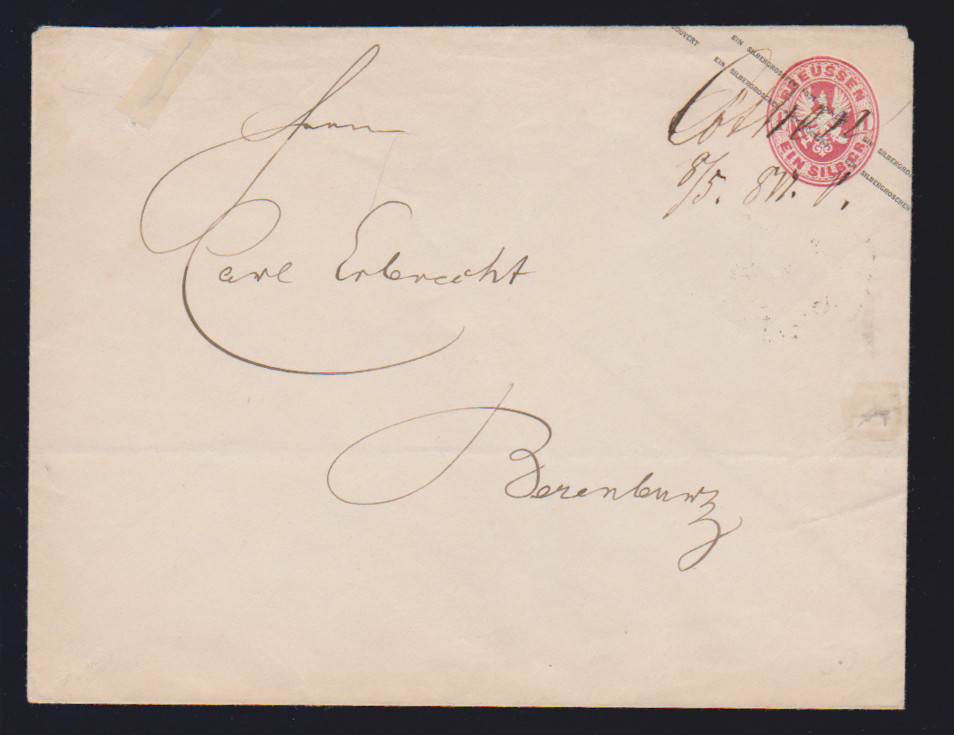 COUVERT EIN SILBERGROSCHEN
EIN SILBERGROSCHEN
PREUSSEN
1 1
EIN SILBERGR.
EIN SILBERGROSCHEN
SILBERGROSCHEN
8/5.
Herrn
Carl Erbrecht
Berenburg